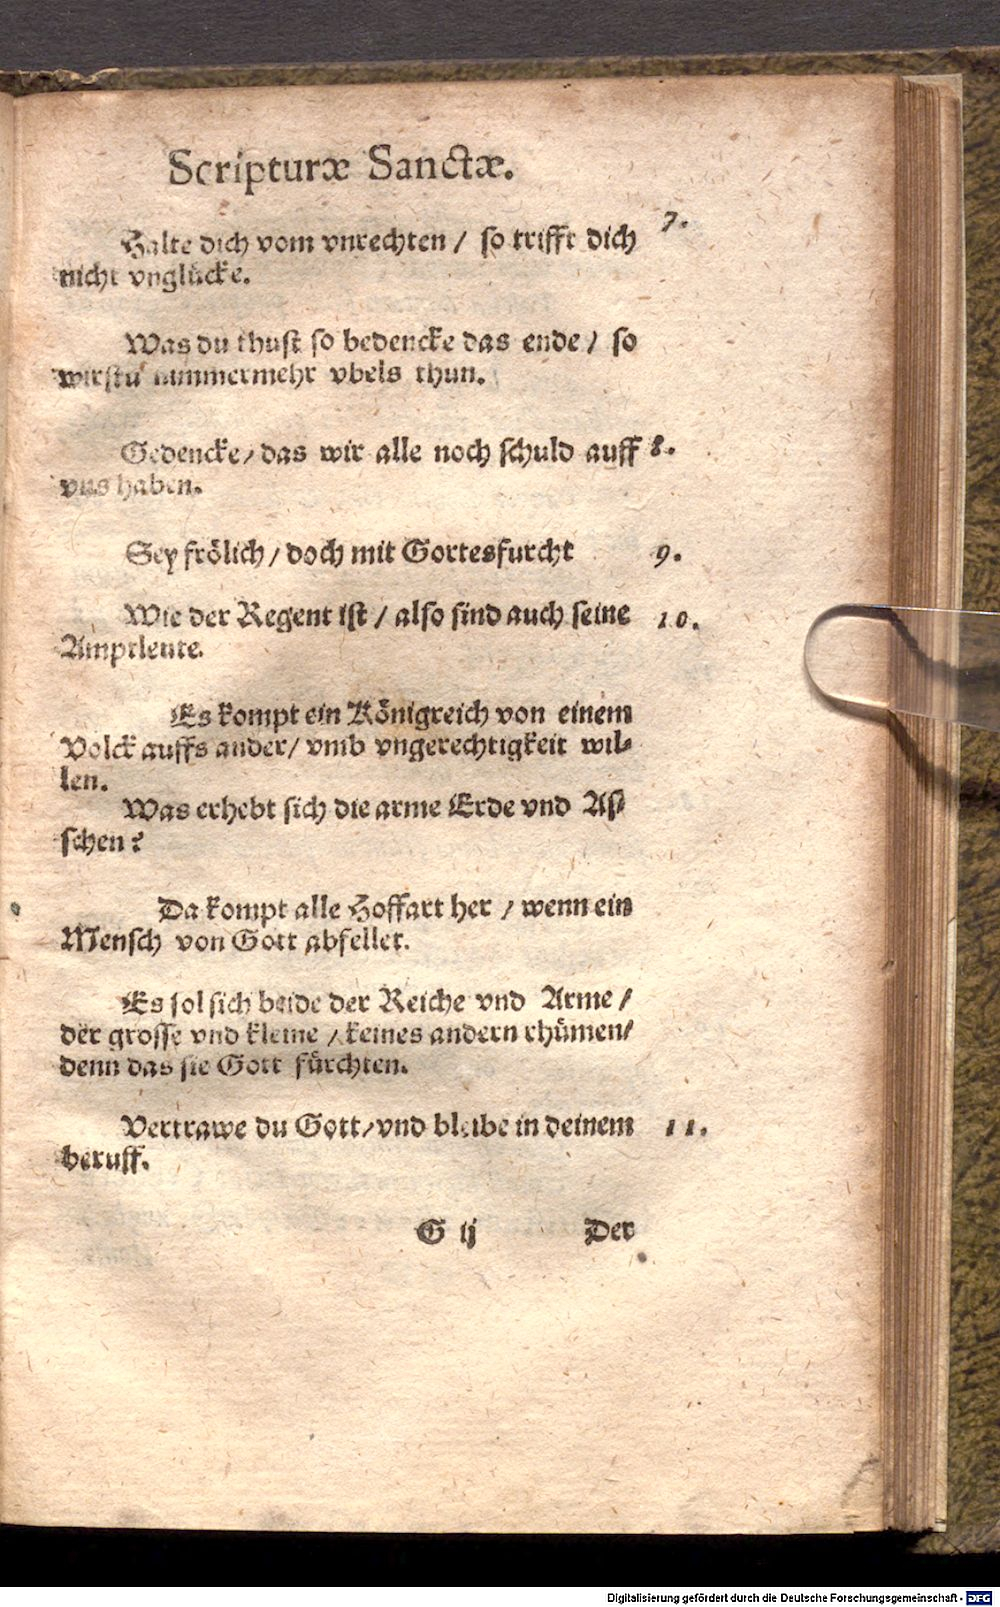 Scripturæ Sanctæ.
Halte dich vom vnrechten / so trifft dich 7.
nicht vnglücke.
Was du thust so bedencke das ende / so
wirstu nimmermehr vbels thun.
Gedencke / das wir alle noch schuld auff 8.
vns haben.
Sey frölich / doch mit Gottesfurcht 9.
Wie der Regent ist / also sind auch seine 10.
Amptleute.
Es kompt ein Königreich von einem
Volck auffs ander / vmb vngerechtigkeit wil-
len.
Was erhebt sich die arme Erde vnd As-
schen?
Da kompt alle Hoffart her / wenn ein
Mensch von Gott abfellet.
Es sol sich beide der Reiche vnd Arme /
der grosse vnd kleine / keines andern rhümen /
denn das sie Gott fürchten.
Vertrawe du Gott / vnd bleibe in deinem 11.
beruff.
G ij Der
Digitalisierung gefördert durch die Deutsche Forschungsgemeinschaft - DFG